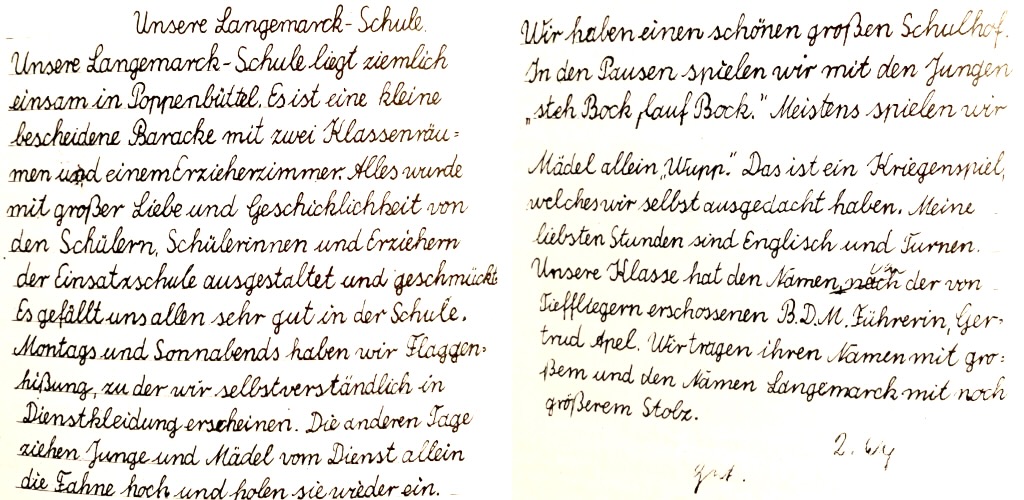 Unsere Langemarck-Schule.
Unsere Langemarck-Schule liegt ziemlich
einsam in Poppenbüttel. Es ist eine kleine
bescheidene Baracke mit zwei Klassenräu=
men und einem Erzieherzimmer. Alles wurde
mit großer Liebe und Geschicklichkeit von
den Schülern, Schülerinnen und Erziehern
der Einsatzschule ausgestaltet und geschmückt
Es gefällt uns allen sehr gut in der Schule.
Montags und Sonnabends haben wir Flaggen=
hißung, zu der wir selbstverständlich in
Dienstkleidung erscheinen. Die anderen Tage
ziehen Junge und Mädel vom Dienst allein
die Fahne hoch und holen sie wieder ein.
Wir haben einen schönen großen Schulhof.
In den Pausen spielen wir mit den Jungen
„steh Bock, lauf Bock." Meistens spielen wir
Mädel allein „Wupp". Das ist ein Kriegenspiel,
welches wir selbst ausgedacht haben. Meine
liebsten Stunden sind Englisch und Turnen.
Unsere Klasse hat den Namen, nach der von
Tieffliegern erschossenen B.D.M. Führerin, Ger=
trud Apel. Wir tragen ihren Namen mit gro=
ßem und den Namen Langemarck mit noch
größerem Stolz.
gut.